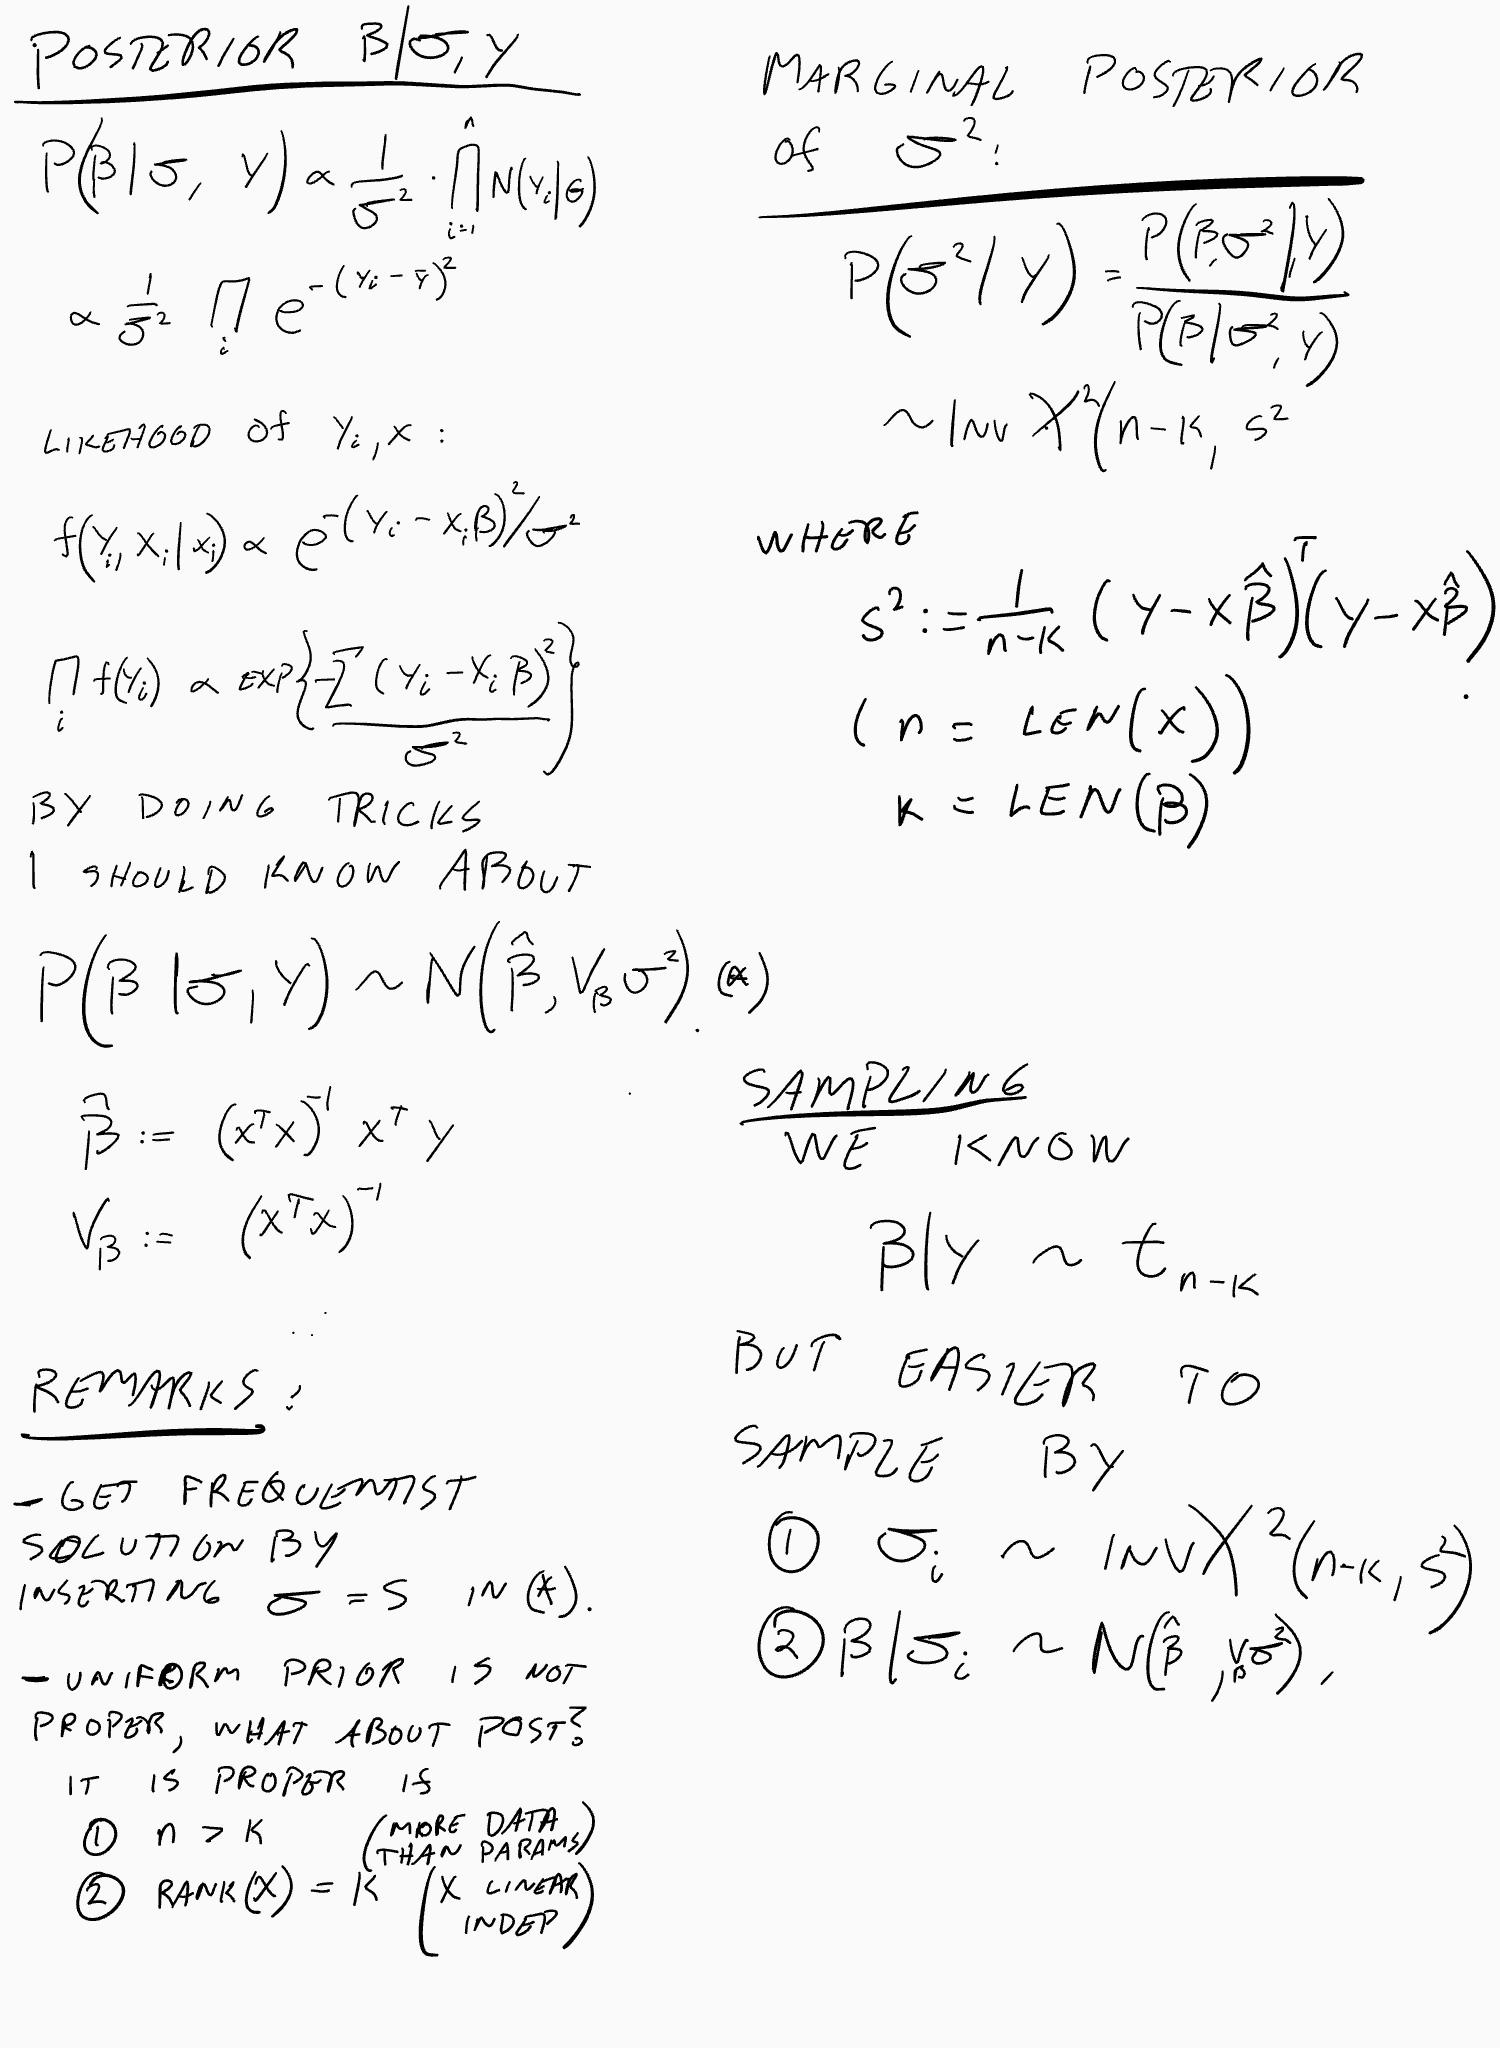 POSTERIOR β|σ, Y
P(β|σ, Y) ∝ 1/σ² · ∏_{i=1}^{n} N(Y_i|θ)
∝ 1/σ² ∏_i e^{-(Y_i - ȳ)²}
LIKEHOOD OF Y_i, X :
f(Y_i, X_i|x_i) ∝ e^{-(Y_i - X_iβ)²/σ²}
∏_i f(Y_i) ∝ EXP{-∑(Y_i - X_i β)² / σ²}
BY DOING TRICKS
I SHOULD KNOW ABOUT
P(β|σ, Y) ~ N(β̂, V_β σ²). (*)
β̂ := (XᵀX)⁻¹ Xᵀ y
V_β := (XᵀX)⁻¹
REMARKS:
- GET FREQUENTIST
SOLUTION BY
INSERTING σ = S IN (*).
- UNIFORM PRIOR IS NOT
PROPER, WHAT ABOUT POST?
IT IS PROPER If
① n > K (MORE DATA
THAN PARAMS)
② RANK(X) = K (X LINEAR
INDEP)
MARGINAL POSTERIOR
of σ²:
P(σ²|Y) = P(β,σ²|Y) / P(β|σ², Y)
~ INV χ²(n-K, S²
WHERE
S² := 1/(n-K) (Y - Xβ̂)ᵀ(Y - Xβ̂).
(n = LEN(X))
K = LEN(β)
SAMPLING
WE KNOW
β|Y ~ t_{n-K}
BUT EASIER TO
SAMPLE BY
① σ_i ~ INVχ²(n-K, S²)
② β|σ_i ~ N(β̂, V_β σ²).